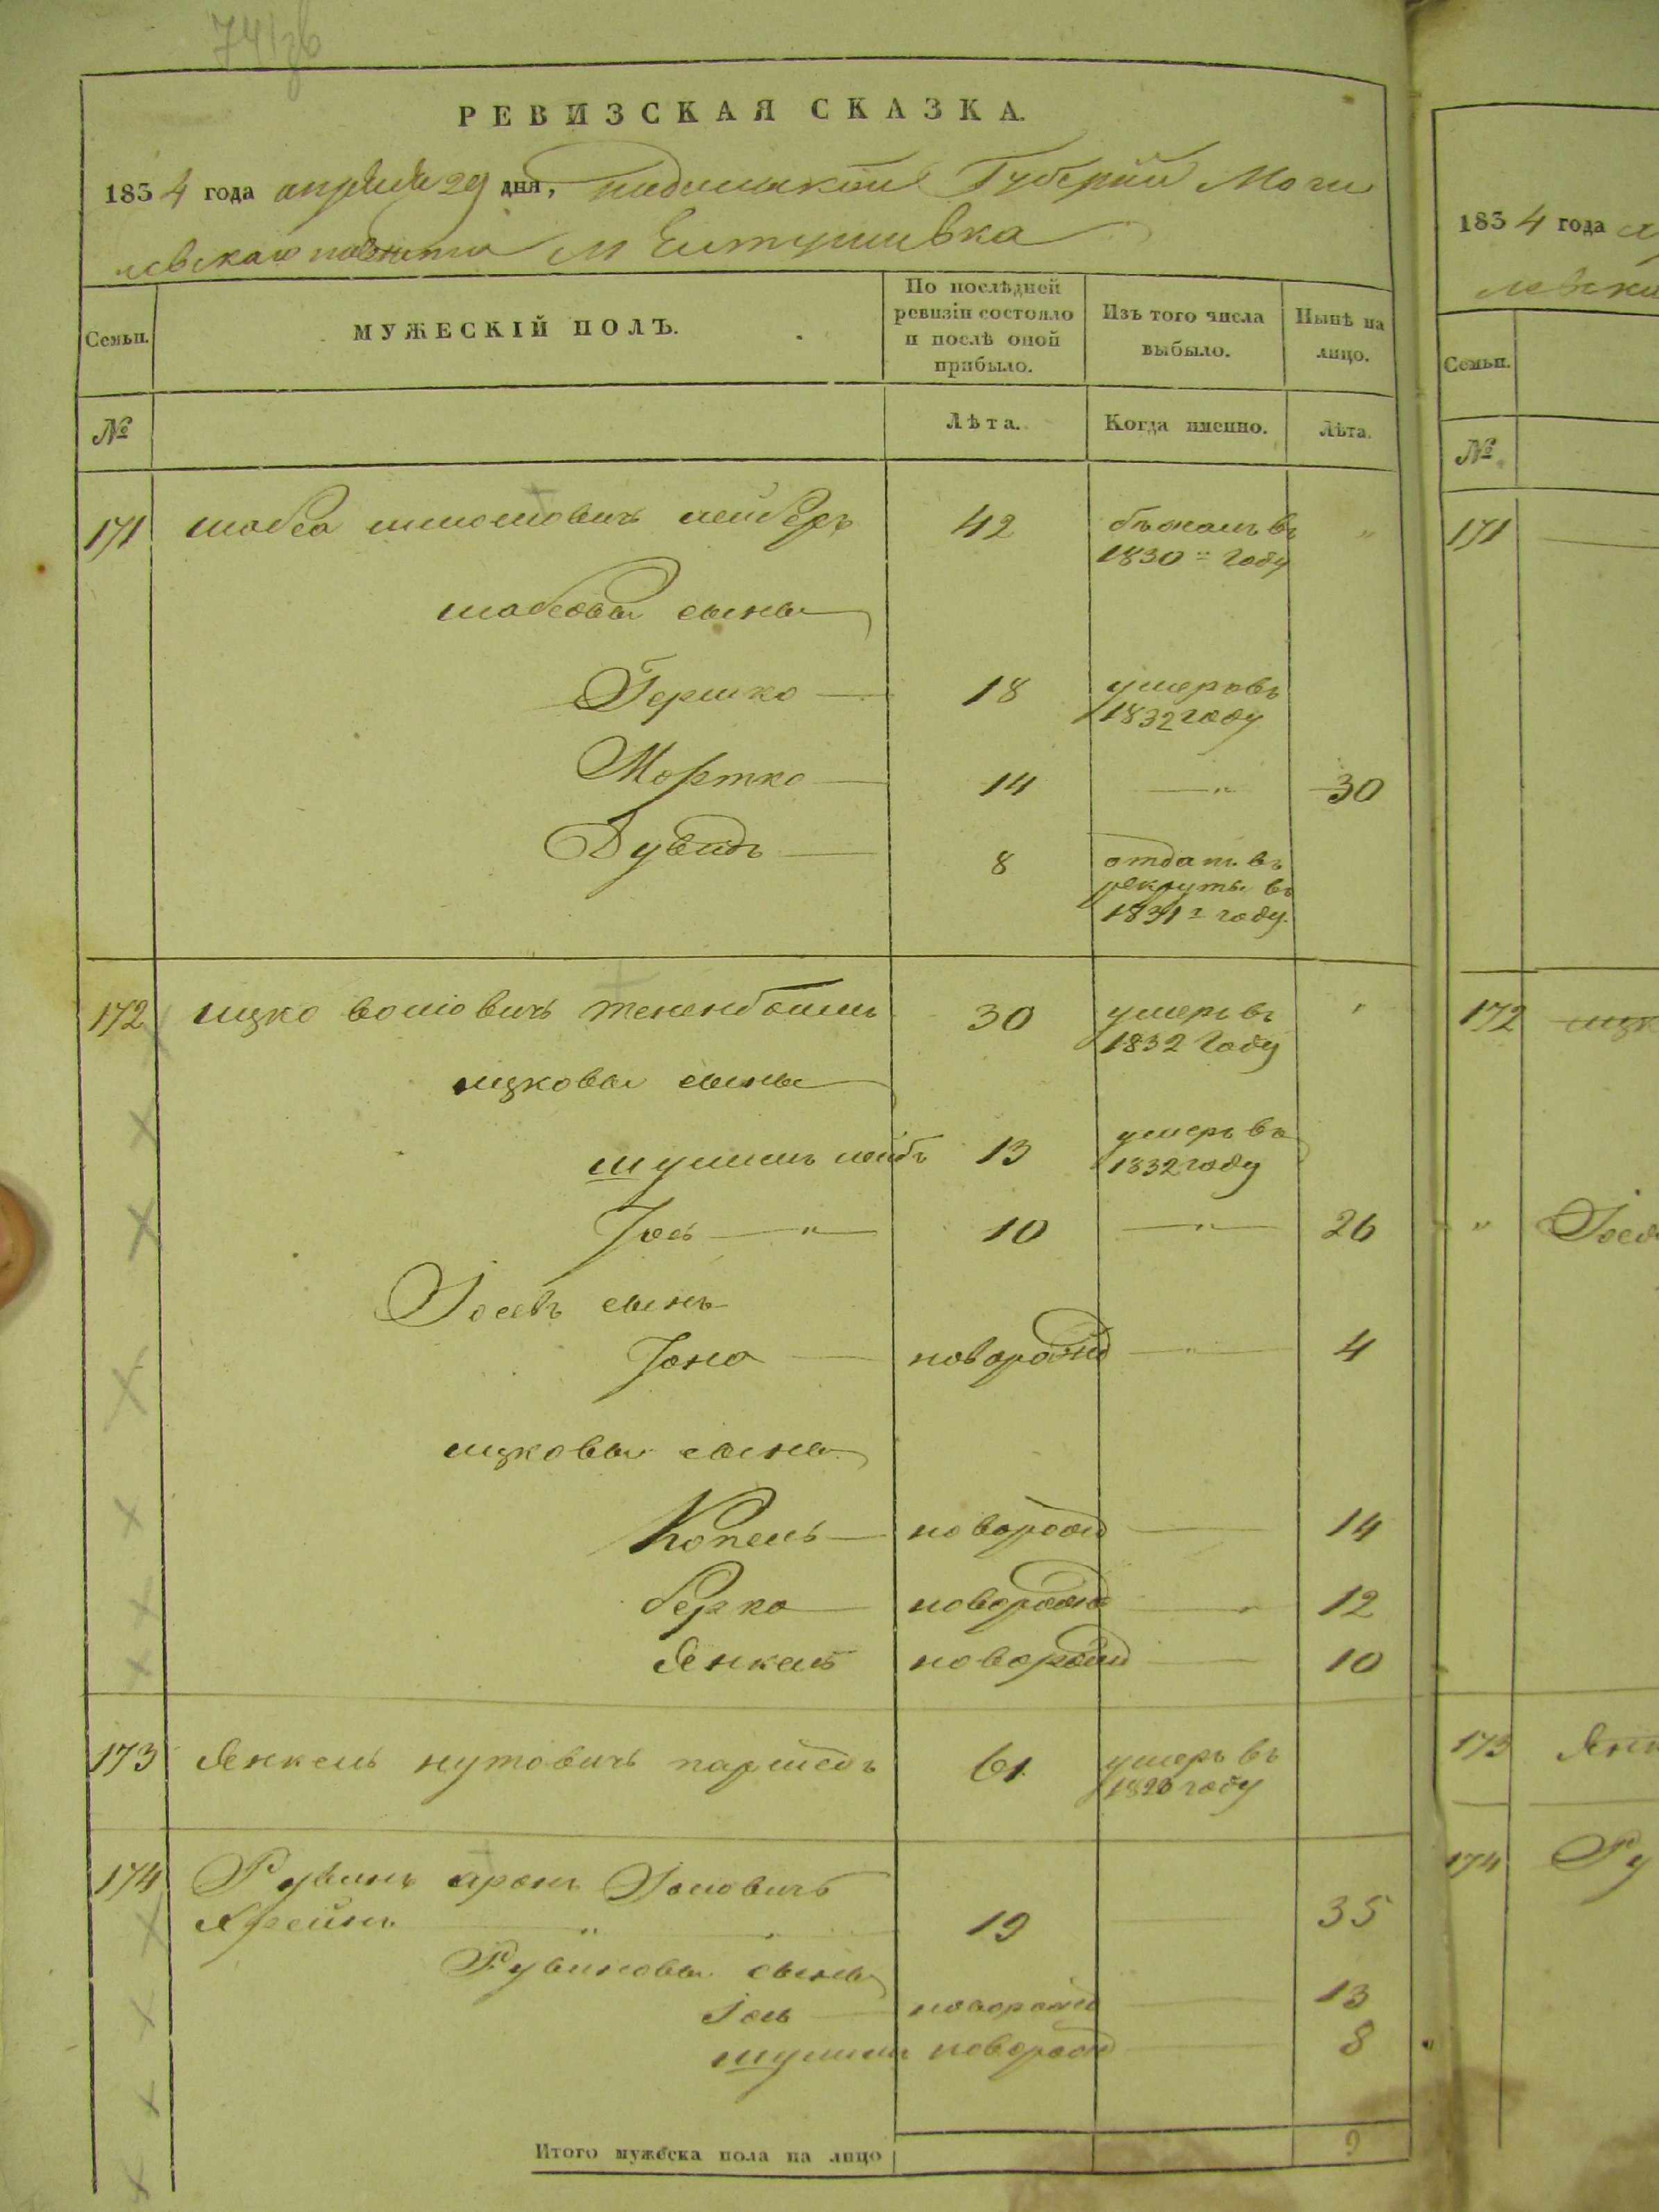 РЕВИЗСКАЯ СКАЗКА.
1834 года апреля 29 дня, подольской Губернии Моги
левскаго повета м Елтушивка
Семьи.
МУЖЕСКІЙ ПОЛЪ.
По послѣдней ревизіи состояло и послѣ оной прибыло.
Изъ того числа выбыло.
Нынѣ на лицо.
№
Лѣта.
Когда именно.
Лѣта.
171 шабса шмомовичъ лейберъ 42 бѣжалъ въ
1830 году
шабсовы сыны
Гершко 18 умеръ въ
1832 году
Мортко 14 30
Дувидъ 8 отдатъ въ
рекруты въ
1831 г году
172 ицко вольовичъ тененбоимъ 30 умеръ въ
1832 Году
ицковы сыны
шулимъ лейбъ 13 умеръ въ
1832 году
Іось 10 26
Іосевъ сынъ
Іона новорожд 4
ицковы сыны
Копель новорожд 14
берко новорожд 12
Янкель новорожд 10
173 Янкель нутовичъ 61 умеръ въ
году
174 Рувинъ аронъ Іоиовичъ
Крейнъ 19 35
Рувиновы сыны
Іось новорожд 13
шулимъ новорожд 8
Итого мужеска пола на лицо 9
1834 года
Семьи.
№
171
172 ицк
173 Янк
174 Ру